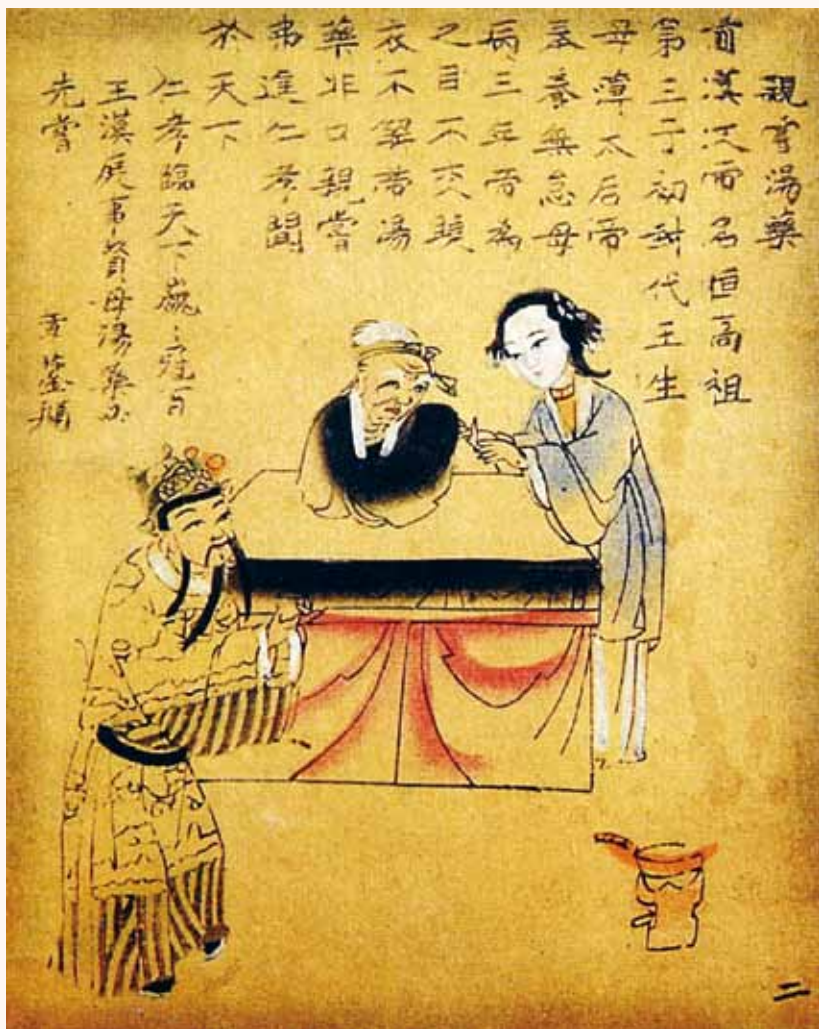 親嘗湯藥
前漢文帝名恒高祖
第三子初封代王生
母薄太后帝
奉養無怠母
病三年帝為
之目不交睫
衣不解帶湯
藥非口親嘗
弗進仁孝聞
於天下
仁孝臨天下巍々冠百
王漢庭事賢母湯藥必
先嘗
二